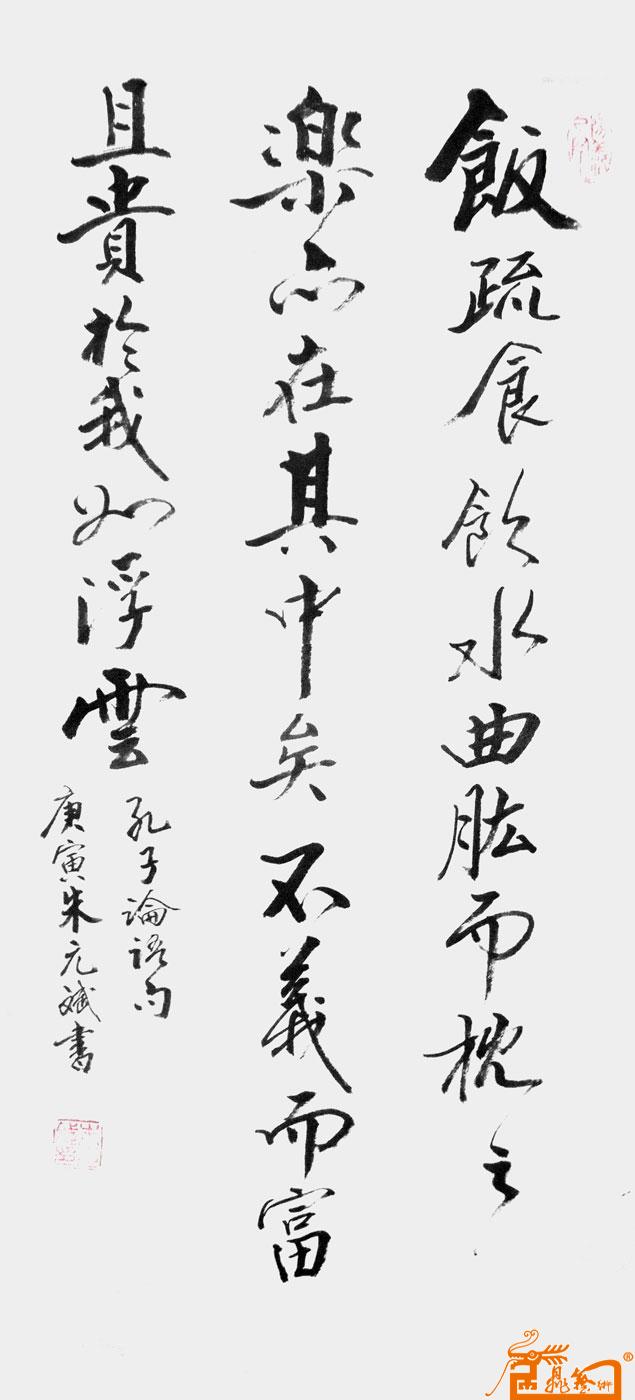 飯疏食飲水曲肱而枕之
樂亦在其中矣不義而富
且貴於我如浮雲
孔子論語句
庚寅朱元斌書